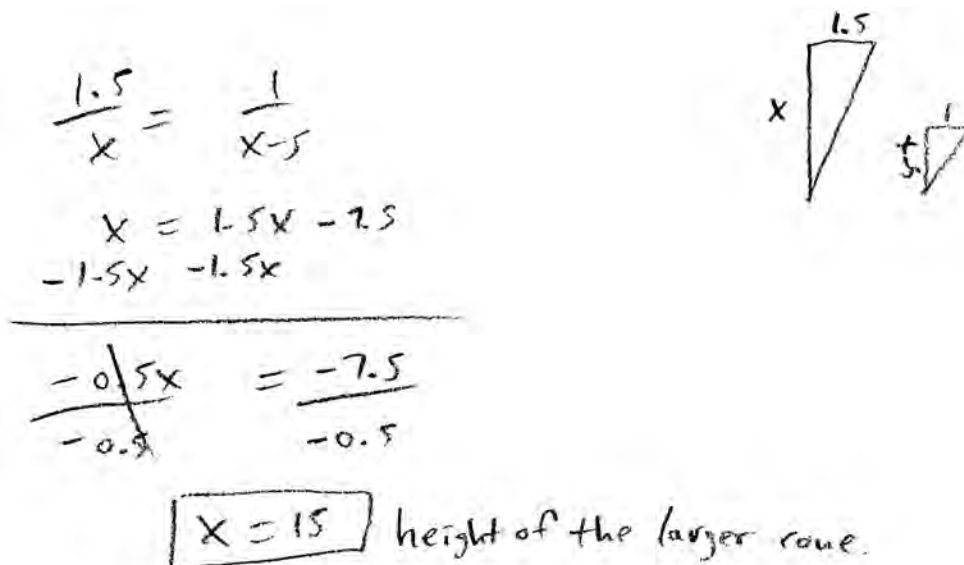 1.5/x = 1/x-5
x = 1.5x - 7.5
-1.5x -1.5x
-0.5x/-0.5 = -7.5/-0.5
x = 15 height of the larger cone.
1.5
x
1